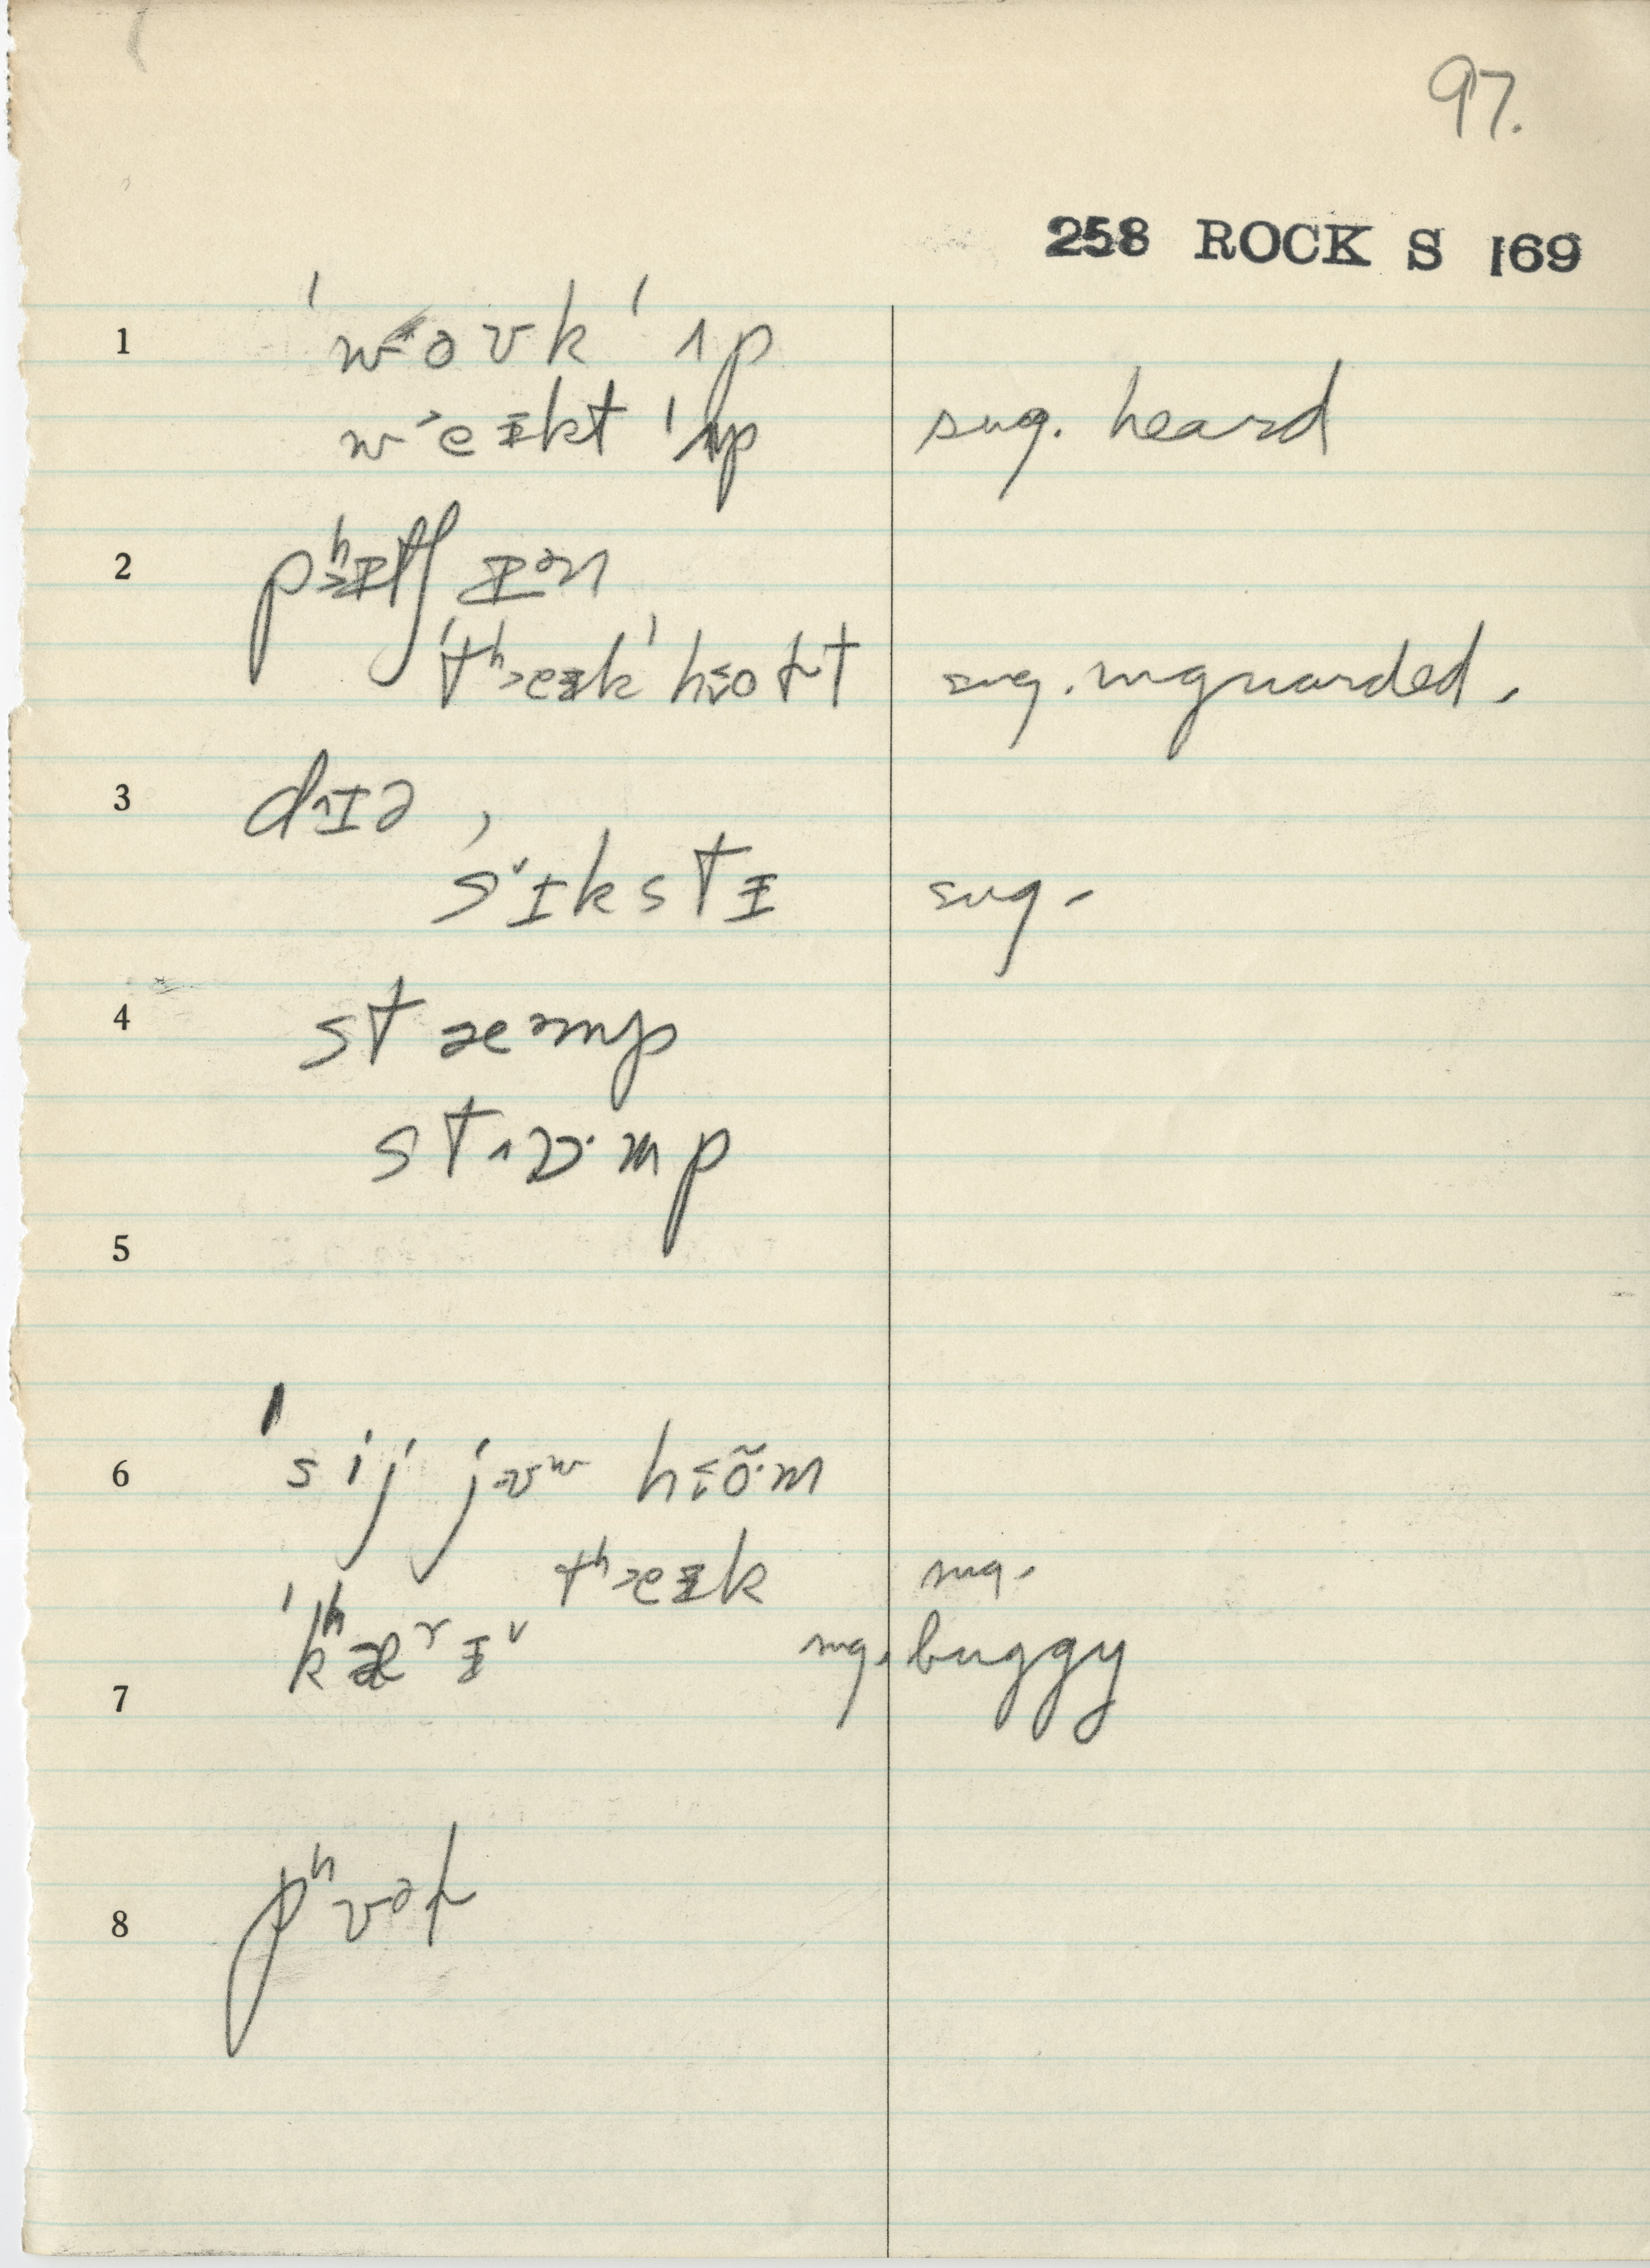 97.
258 ROCK S 169
1 ˈwoʊkˈʌp
w˃eɪktˈʌp sug. heard
2 pʰɪtʃ ɪən
ˈtʰ˃eɪkˈhɜot sug. unguarded.
3 dɪə,
s˅ɪkstɪ sug.
4 stæəmp
stɒ·mp
5
6 ˈsij jʊʷ hɜõ·m
tʰ˃eɪk sug.
ˈkʰærɪ˅ sug. buggy
7
8 pʰʊət